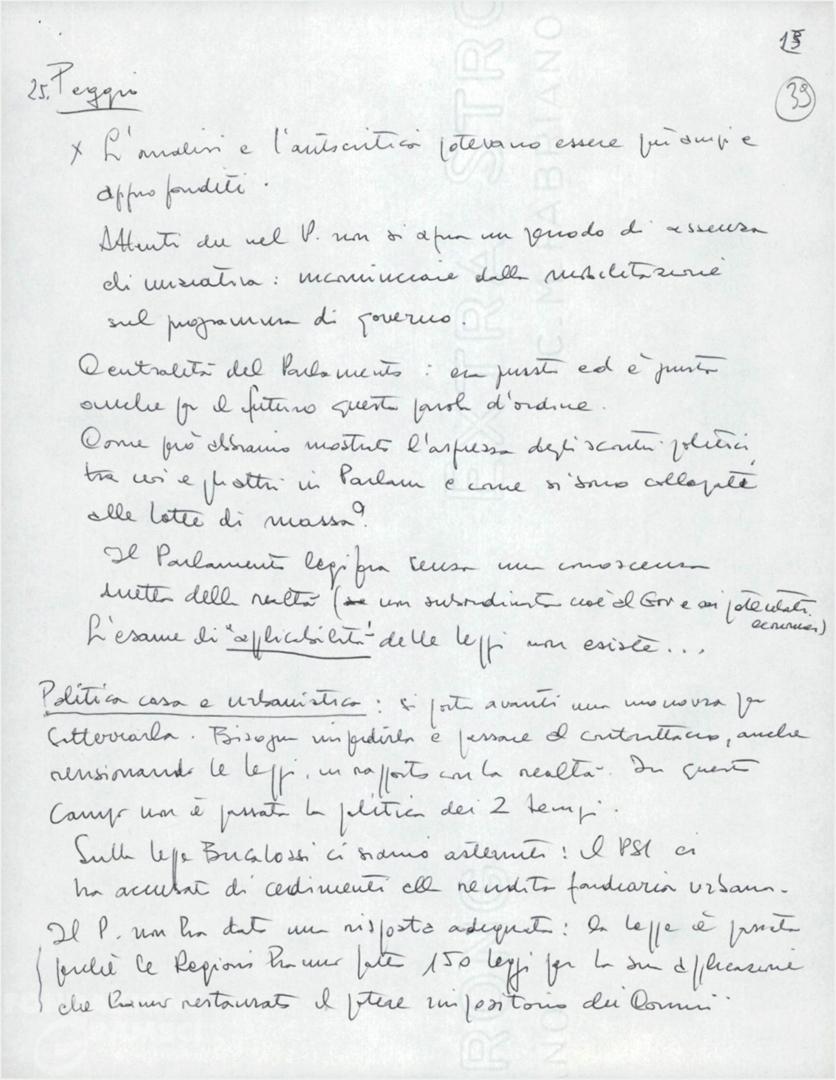 15
39
25. Peggio
x L'analisi e l'autocritica potevano essere più ampi e
approfonditi.
Attenti che nel P. non si apra un periodo di assenza
di iniziativa: incominciare dalla mobilitazione
sul programma di governo.
Centralità del Parlamento: era giusta ed è giusta
anche per il futuro questa parola d'ordine.
Come però abbiamo mostrato l'asprezza degli scontri politici
tra noi e gli altri in Parlam e come si sono collegate
alle lotte di massa?
Il Parlamento legifera senza una conoscenza
diretta della realtà ( non subordinata cioè al Gov e ai potentati
economici)
L'esame di "applicabilità" delle leggi non esiste...
Politica casa e urbanistica: si porta avanti una manovra per
affossarla. Bisogna impedirla e passare al contrattacco, anche
revisionando le leggi, in rapporto con la realtà. In questo
campo non è passata la politica dei 2 tempi.
Sulla legge Bucalossi ci siamo astenuti: il PSI ci
ha accusati di cedimenti alla rendita fondiaria urbana.
Il P. non ha dato una risposta adeguata: la legge è giusta
perché le Regioni hanno fatto 150 leggi per la sua applicazione
che hanno restaurato il potere impositorio dei Comuni